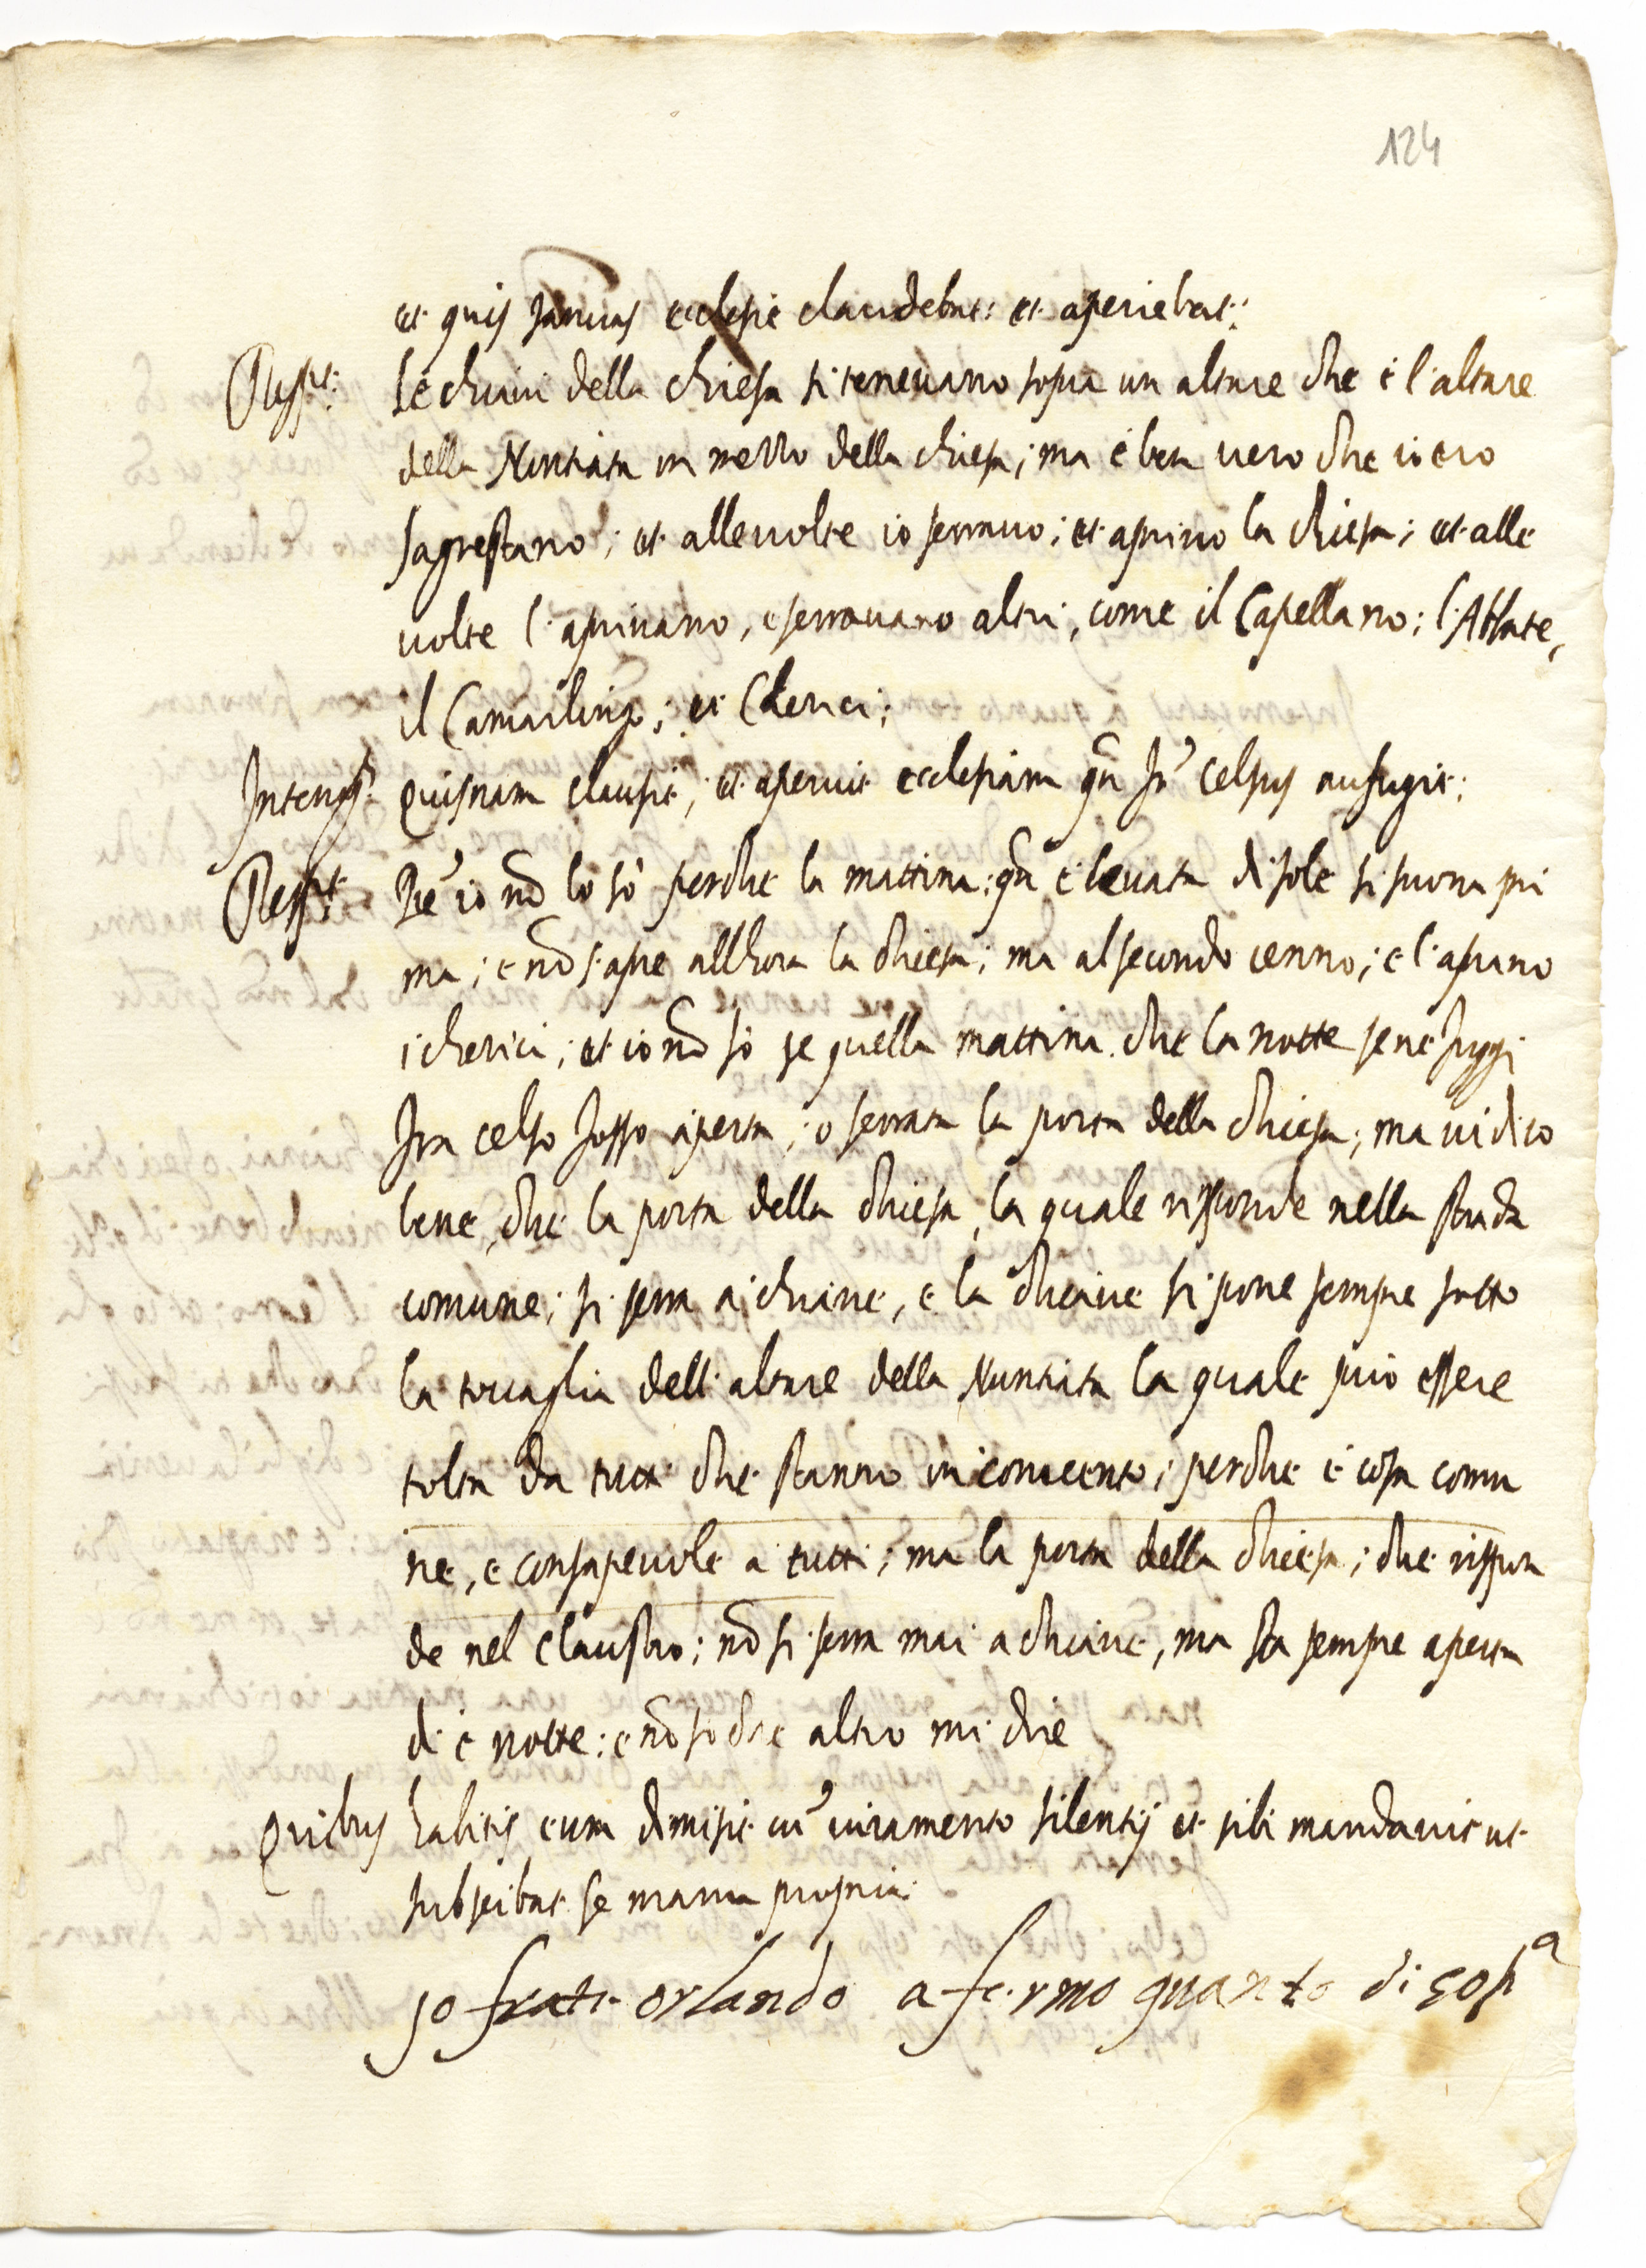 124
et quis Januas ecclesie claudebat: et aperiebat:
Resp.t: Le chiavi della chiesa si tenevano sopra un altare che è l'altare
della Nuntiata in mezzo della chiesa; ma è ben vero che io ero
sagrestano; et allevolte io serravo; et aprivo la chiesa; et alle
volte l'aprivano, e serravano altri, come il Capellano; l'Abbate,
il Camarlingo; et Cherici;
Interog.t Quisnam clausit; et aperuit ecclesiam qñ fr' Celsus aufugit:
Resp.t P.re io nõ lo sò perche la mattina: qñ è levata di sole si suona pri
ma; e nõ s'apre allhora la chiesa; ma al secondo cenno; e l'aprano
i cherici; et io nõ sò se quella mattina che la notte sene fuggi
fra celso fosse aperta; o serrata la porta della chiesa; ma vi dico
bene, che la porta della chiesa, la quale risponde nella strada
comune; si serra a chiave, e la chiave si pone sempre sotto
la tovaglia dell'altare della Nuntiata la quale può essere
tolta da tutti che stanno in convento; perche è cosa comu
ne, e consapevole a tutti; ma la porta della chiesa; che rispon
de nel claustro; nõ si serra mai a chiave, ma sta sempre aperta
di è notte: e nõ so che altro mi dire
Quibus habitis eum dimisit cu' iuramento silentij et sibi mandavit ut
subscribat se manu propria:
Jo frate orlando afermo quanto di sop.a